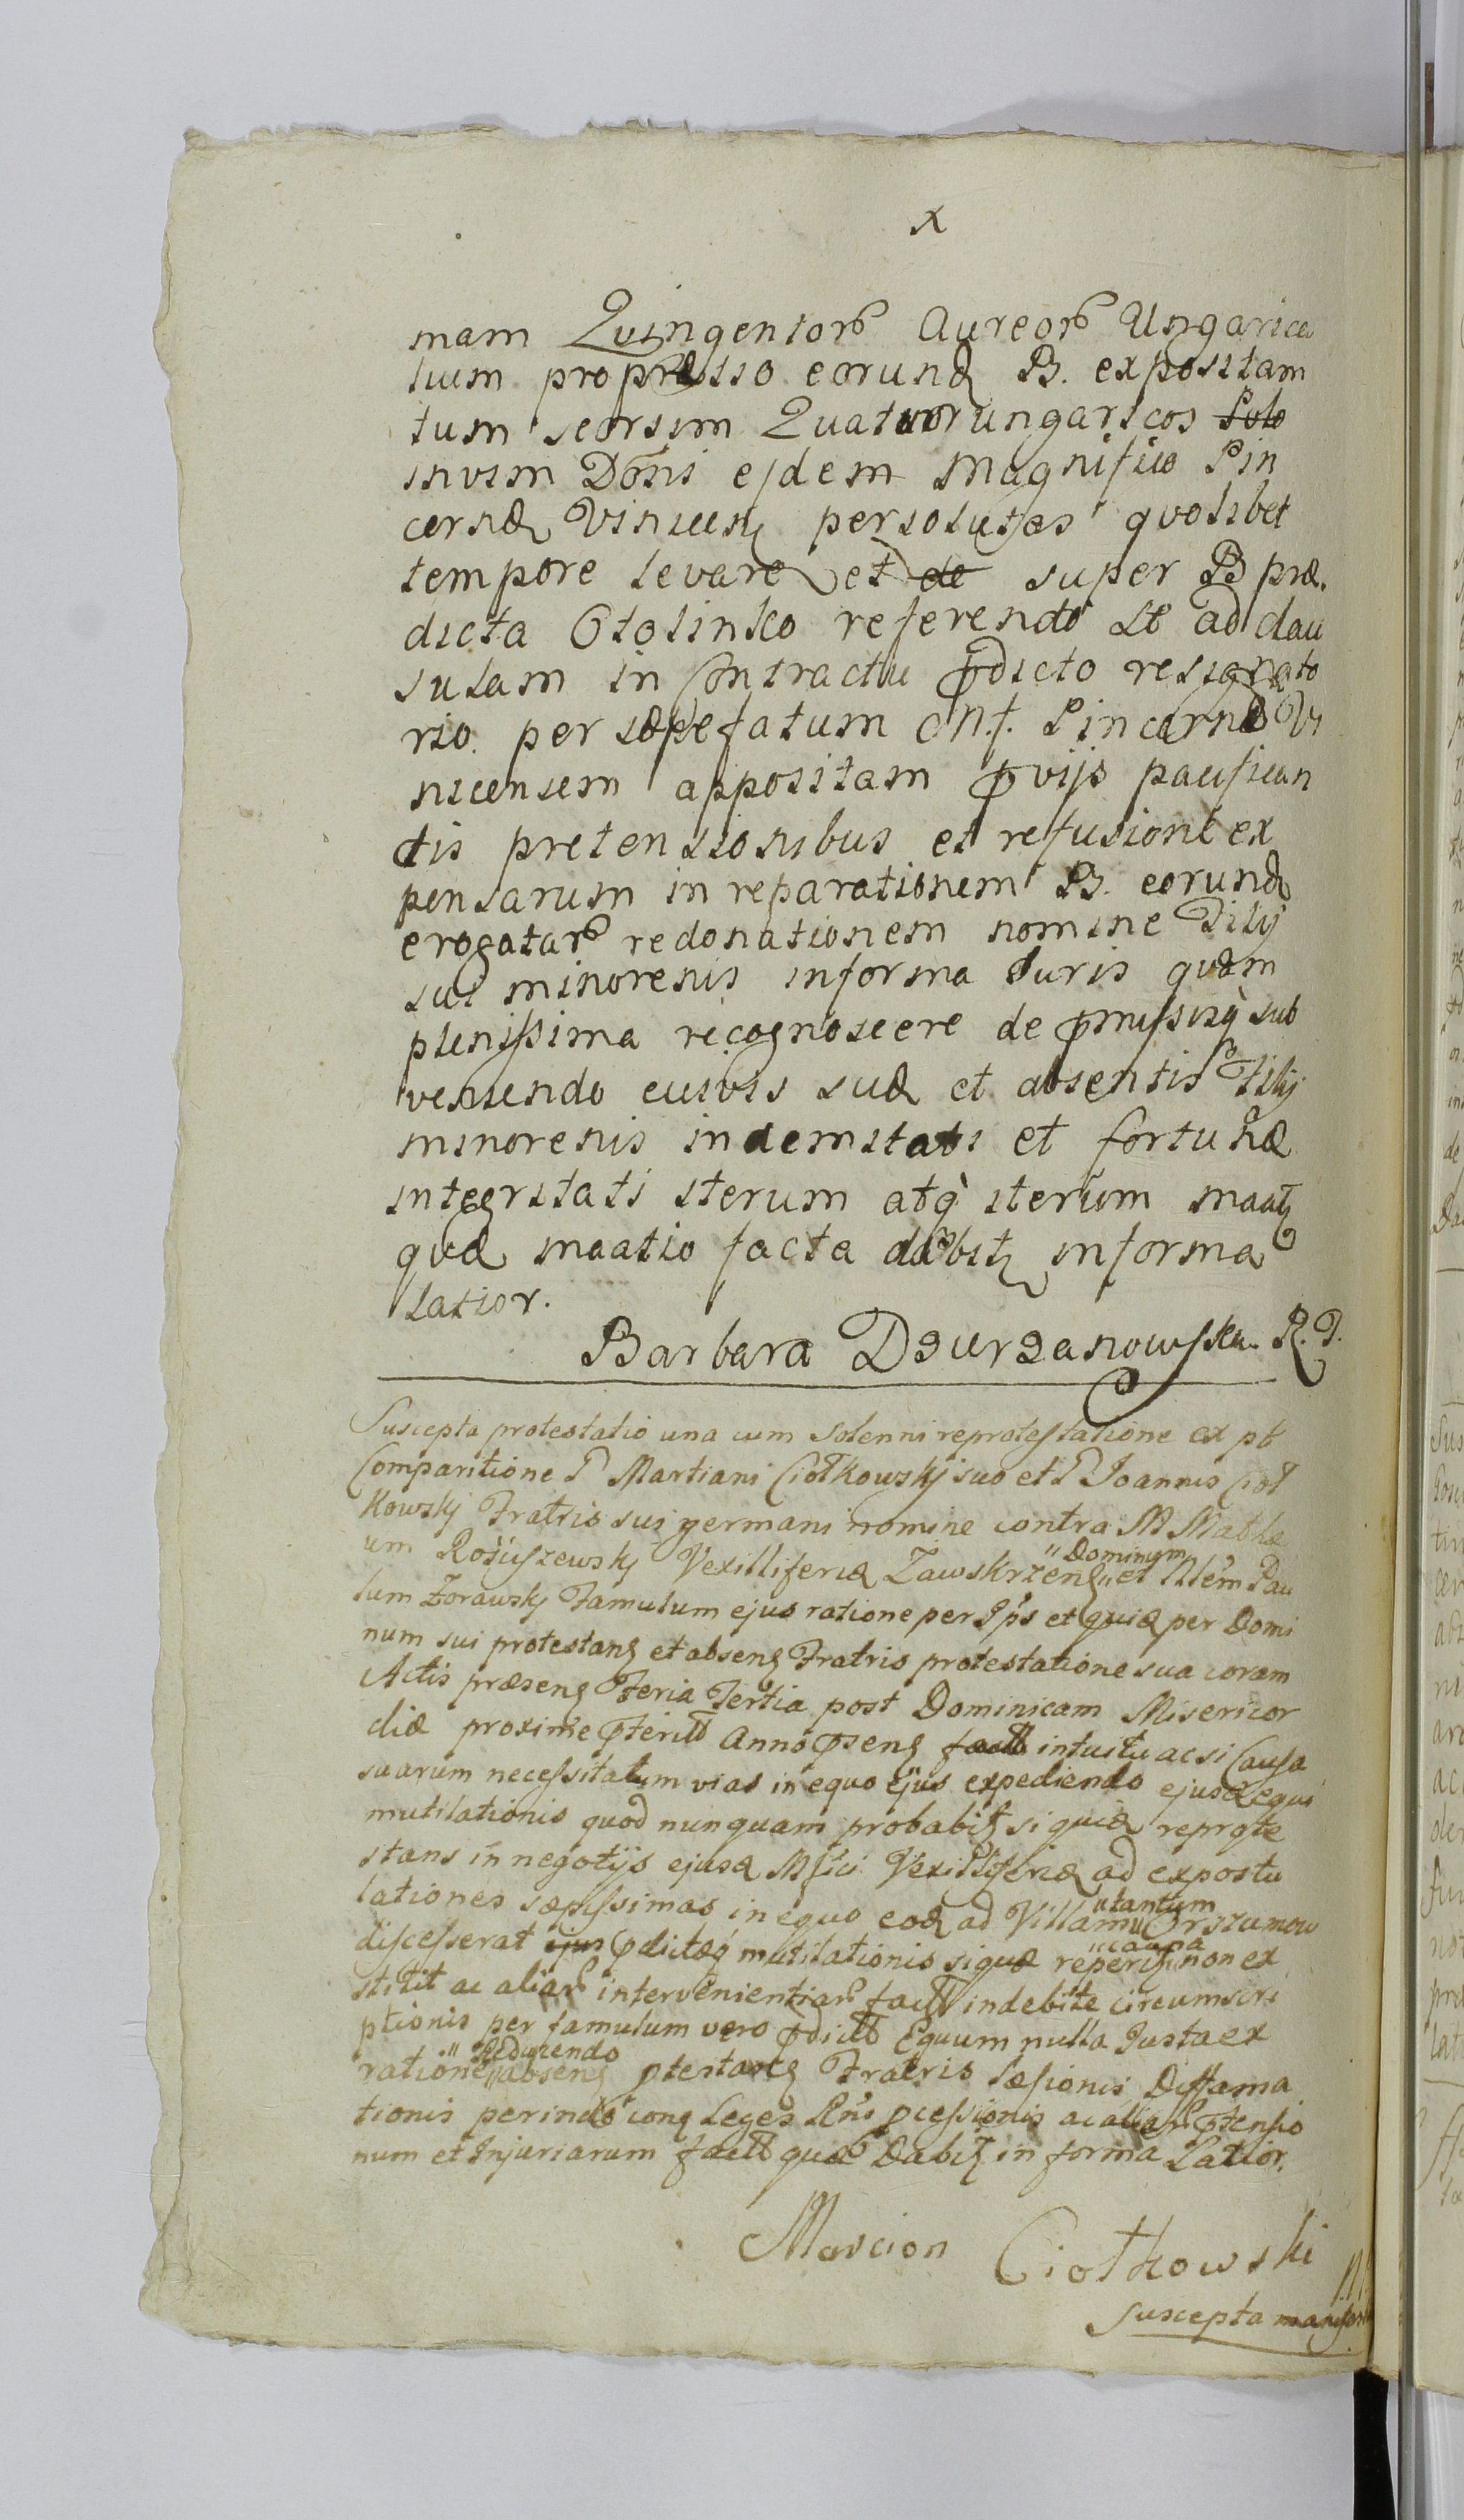 x
mam Quingentorb Aureorb Ungarica
lium proprætio eorundꝫ B. expositam
tum seorsim Quatuor ungaricos Solo
invim Dōni ejdem Magnifico Pin
cernæ Vincen͛ persolutos quolibet
tempore levare et de super B præ.
dicta Ololinko referendo et ad clau
sulam in Contractu ꝓdicto resignato
rio per sæpefatum M.f. Pincernæ Vi
nicensem appositam ꝓvijs pacifican
tis pretensionibus et refusione ex
pensarum in reparationem B. eorundꝫ
erogatarb redonationem nomine Filij
sui minorenis informa Iuris quam
plenissima recognoscere de ꝓmissisq̀ sub
veniendo cuivis suæ et absentis Filij
minorenis indemitati et fortunæ
integritati iterum atq̀ iterum maatꝫ
quæ maatio facta dābitꝫ informa
latior.
Barbara Dzurzanowska R. P.
Suscepta protestatio una cum solenni reprotestatione ex pt
Comparitione P Martiani Ciołkowskj suo et P Joannis Cioł
kowskj Fratris sui germani nomine contra M Mathæ
um Rościszewskj Vexilliferiæ Zawskrzenꝫ " et Nlem Pau
" Dominum
lum Zorawskj Famulum ejus ratione per Ips et quiæ per Domi
num sui protestanꝫ et absenꝫ Fratris protestatione sua coram
Actis præsenꝫ Feria Tertia post Dominicam Misericor
diæ proxime ꝓteritt Anno ꝓsenꝫ factt intuitu ac si Causa
suarum necessitatum vias in equo ejus expediendo ejusꝫ equi
mutilationis quod nunquam probabitꝫ si quiꝫ reprote
stans in negotijs ejusꝫ Mfici Vexilliferiæ ad expostu
lationes sæpissimas in equo eoꝫ ad Villam " Orszumow
utantum
discesserat ejus ꝓdictæq̀ mutilationis siquæ reperitꝫ " non ex
" causa
stitit ac aliarb intervenientiarb factt indebite circumscri
ptionis per famulum vero ꝓdictt Equum nulla Justa ex
ratione " absenꝫ ꝓtestanꝫ Fratris læsionis Diffama
" Reducendo
tionis perinde conꝫ Leges Rni ꝓcessionis ac aliarb ꝓtensio
num et Injuriarum factt quæ Dabitꝫ in forma Latior.
Marcion Ciołkowski
Suscepta